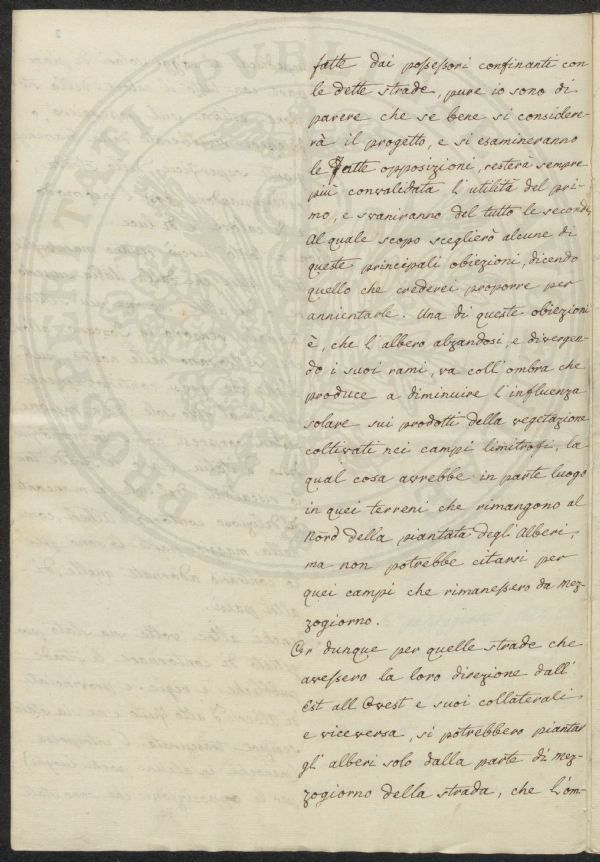 fatte dai possessori confinanti con
le dette strade, pure io sono di
parere che se bene si considere-
rà il progetto, e si esamineranno
le fatte opposizioni, resterà sempre
più convalidata l'utilità del pri-
mo, e svaniranno del tutto le seconde,
Al quale scopo sceglierò alcune di
queste principali obiezioni, dicendo
quello che crederei proporre per
annientarle. Una di queste obiezioni
è, che l'albero alzandosi, e divergen-
do i suoi rami, va coll'ombra che
produce a diminuire l'influenza
solare sui prodotti della vegetazione
coltivati nei campi limitrofi, la
qual cosa avrebbe in parte luogo
in quei terreni che rimangono al
Nord della piantata degl'Alberi,
ma non potrebbe citarsi per
quei campi che rimanessero da mez-
zogiorno.
Or dunque per quelle strade che
avessero la loro direzione dall'
Est all'Ovest e suoi collaterali
e viceversa, si potrebbero piantar
gl'alberi solo dalla parte di mez-
zogiorno della strada, che l'om-